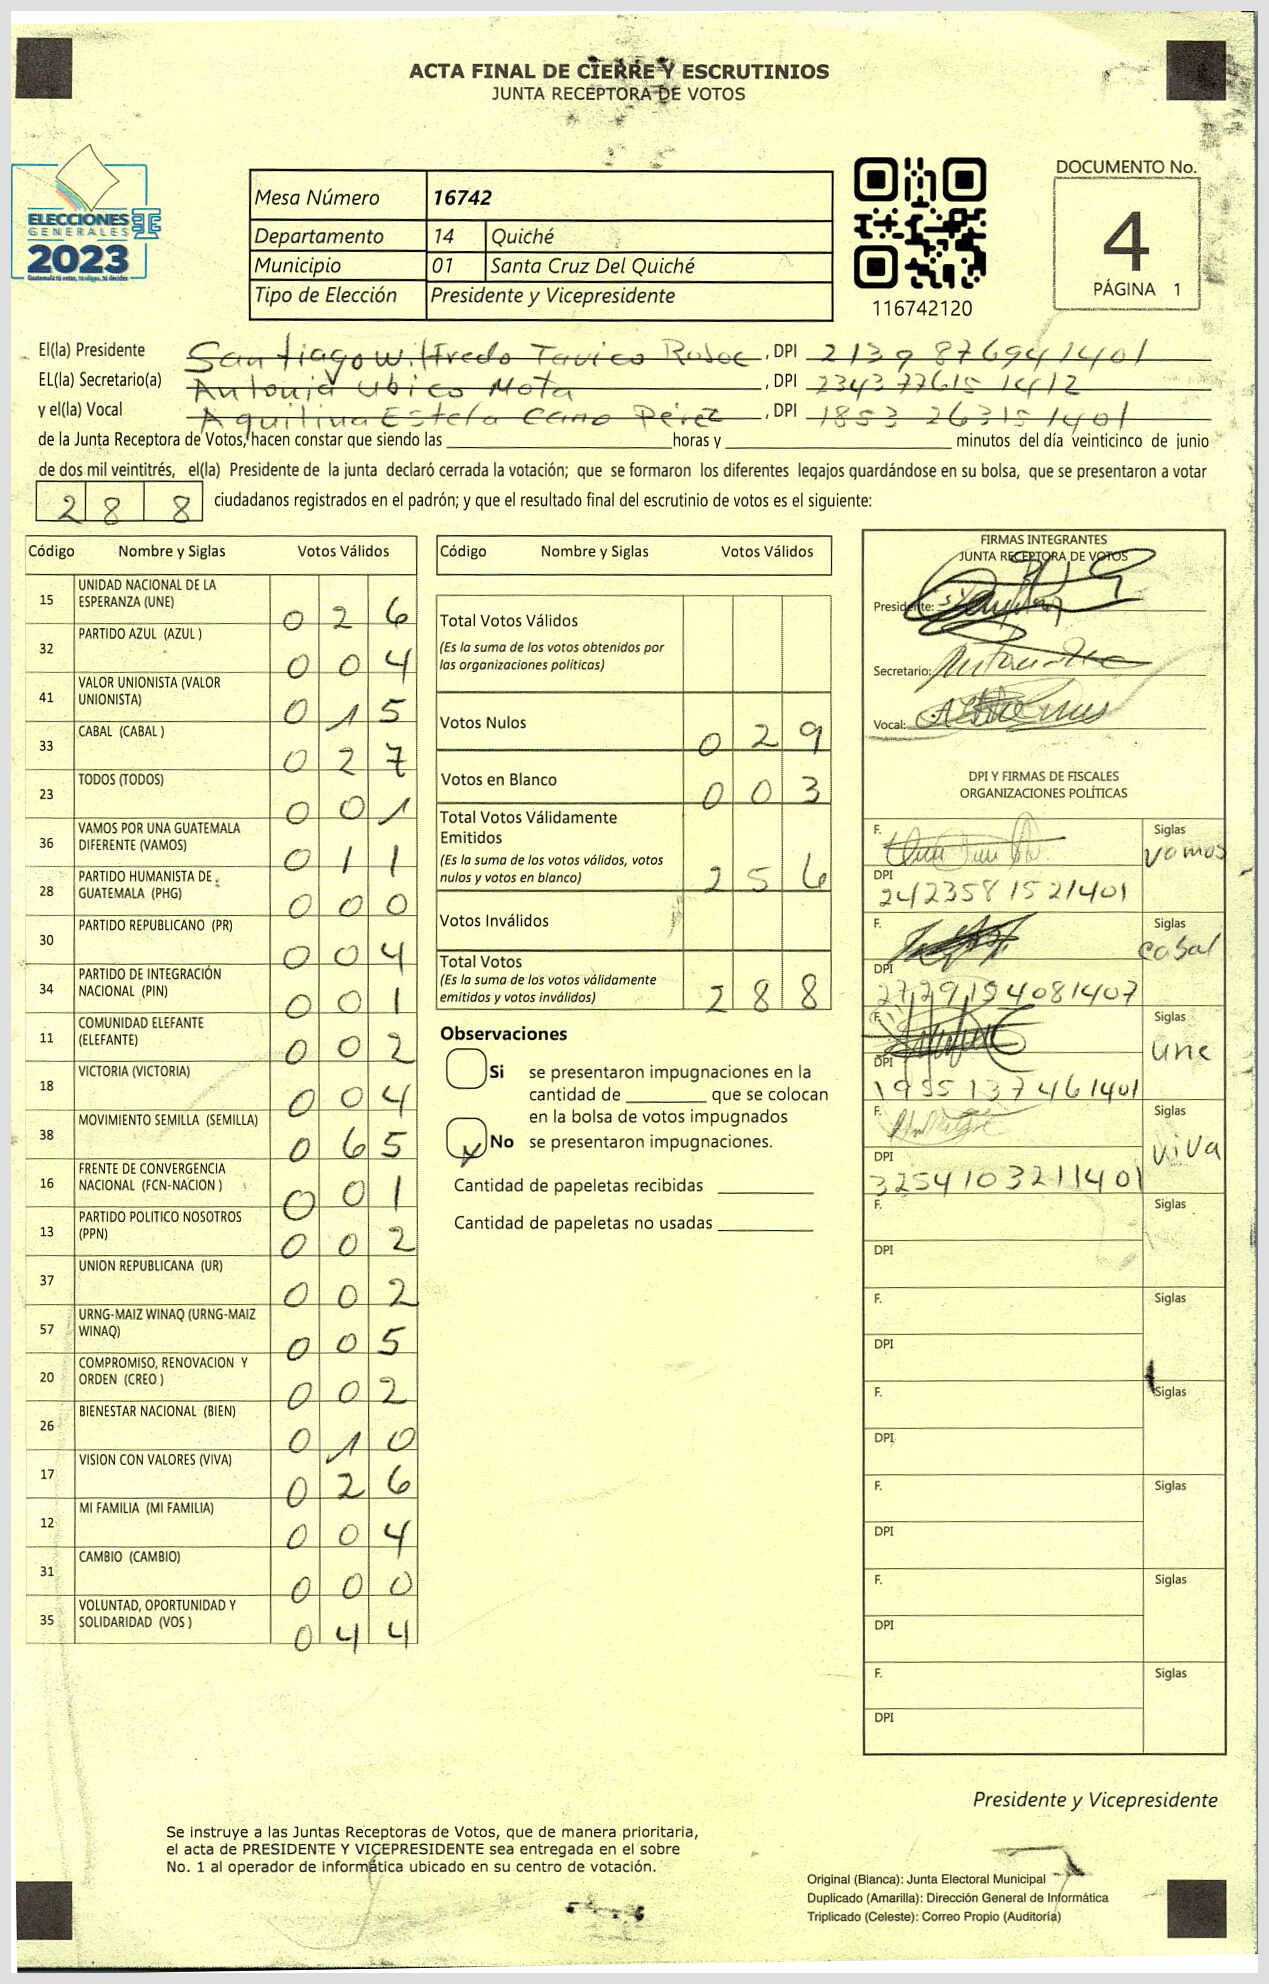 ACTA FINAL DE CIERRE Y ESCRUTINIOS
JUNTA RECEPTORA DE VOTOS
ELECCIONES
GENERALES
2023
Guatemala tú votas, tú eliges, tú decides
Mesa Número 16742
Departamento 14 Quiché
Municipio 01 Santa Cruz Del Quiché
Tipo de Elección Presidente y Vicepresidente
116742120
DOCUMENTO No.
4
PÁGINA 1
El(la) Presidente Santiago Wilfredo Tavico , DPI 2139 876941401
EL(la) Secretario(a) Antonia Ubico Mota , DPI 234377615 1412
y el(la) Vocal Aquilina Estela Cano Pérez , DPI 1853 26315 1401
de la Junta Receptora de Votos, hacen constar que siendo las horas y minutos del día veinticinco de junio
de dos mil veintitrés, el(la) Presidente de la junta declaró cerrada la votación; que se formaron los diferentes legajos guardándose en su bolsa, que se presentaron a votar
2 8 8 ciudadanos registrados en el padrón; y que el resultado final del escrutinio de votos es el siguiente:
Código Nombre y Siglas Votos Válidos
15 UNIDAD NACIONAL DE LA ESPERANZA (UNE) 0 2 6
32 PARTIDO AZUL (AZUL ) 0 0 4
41 VALOR UNIONISTA (VALOR UNIONISTA) 0 1 5
33 CABAL (CABAL ) 0 2 7
23 TODOS (TODOS) 0 0 1
36 VAMOS POR UNA GUATEMALA DIFERENTE (VAMOS) 0 1 1
28 PARTIDO HUMANISTA DE GUATEMALA (PHG) 0 0 0
30 PARTIDO REPUBLICANO (PR) 0 0 4
34 PARTIDO DE INTEGRACIÓN NACIONAL (PIN) 0 0 1
11 COMUNIDAD ELEFANTE (ELEFANTE) 0 0 2
18 VICTORIA (VICTORIA) 0 0 4
38 MOVIMIENTO SEMILLA (SEMILLA) 0 6 5
16 FRENTE DE CONVERGENCIA NACIONAL (FCN-NACION ) 0 0 1
13 PARTIDO POLITICO NOSOTROS (PPN) 0 0 2
37 UNION REPUBLICANA (UR) 0 0 2
57 URNG-MAIZ WINAQ (URNG-MAIZ WINAQ) 0 0 5
20 COMPROMISO, RENOVACION Y ORDEN (CREO ) 0 0 2
26 BIENESTAR NACIONAL (BIEN) 0 1 0
17 VISION CON VALORES (VIVA) 0 2 6
12 MI FAMILIA (MI FAMILIA) 0 0 4
31 CAMBIO (CAMBIO) 0 0 0
35 VOLUNTAD, OPORTUNIDAD Y SOLIDARIDAD (VOS ) 0 4 4
Código Nombre y Siglas Votos Válidos
Total Votos Válidos
(Es la suma de los votos obtenidos por
las organizaciones políticas)
Votos Nulos 0 2 9
Votos en Blanco 0 0 3
Total Votos Válidamente
Emitidos
(Es la suma de los votos válidos, votos
nulos y votos en blanco) 2 5 6
Votos Inválidos
Total Votos
(Es la suma de los votos válidamente
emitidos y votos inválidos) 2 8 8
Observaciones
Si se presentaron impugnaciones en la
cantidad de que se colocan
en la bolsa de votos impugnados
x No se presentaron impugnaciones.
Cantidad de papeletas recibidas
Cantidad de papeletas no usadas
FIRMAS INTEGRANTES
JUNTA RECEPTORA DE VOTOS
Presidente:
Secretario:
Vocal:
DPI Y FIRMAS DE FISCALES
ORGANIZACIONES POLÍTICAS
F. Siglas
vamos
DPI
242358 1521401
F. Siglas
cabal
DPI
272919408 1407
F. Siglas
une
DPI
1955137461401
F. Siglas
viva
DPI
3254103211401
F. Siglas
DPI
F. Siglas
DPI
F. Siglas
DPI
F. Siglas
DPI
F. Siglas
DPI
F. Siglas
DPI
Presidente y Vicepresidente
Se instruye a las Juntas Receptoras de Votos, que de manera prioritaria,
el acta de PRESIDENTE Y VICEPRESIDENTE sea entregada en el sobre
No. 1 al operador de informática ubicado en su centro de votación.
Original (Blanca): Junta Electoral Municipal
Duplicado (Amarilla): Dirección General de Informática
Triplicado (Celeste): Correo Propio (Auditoría)